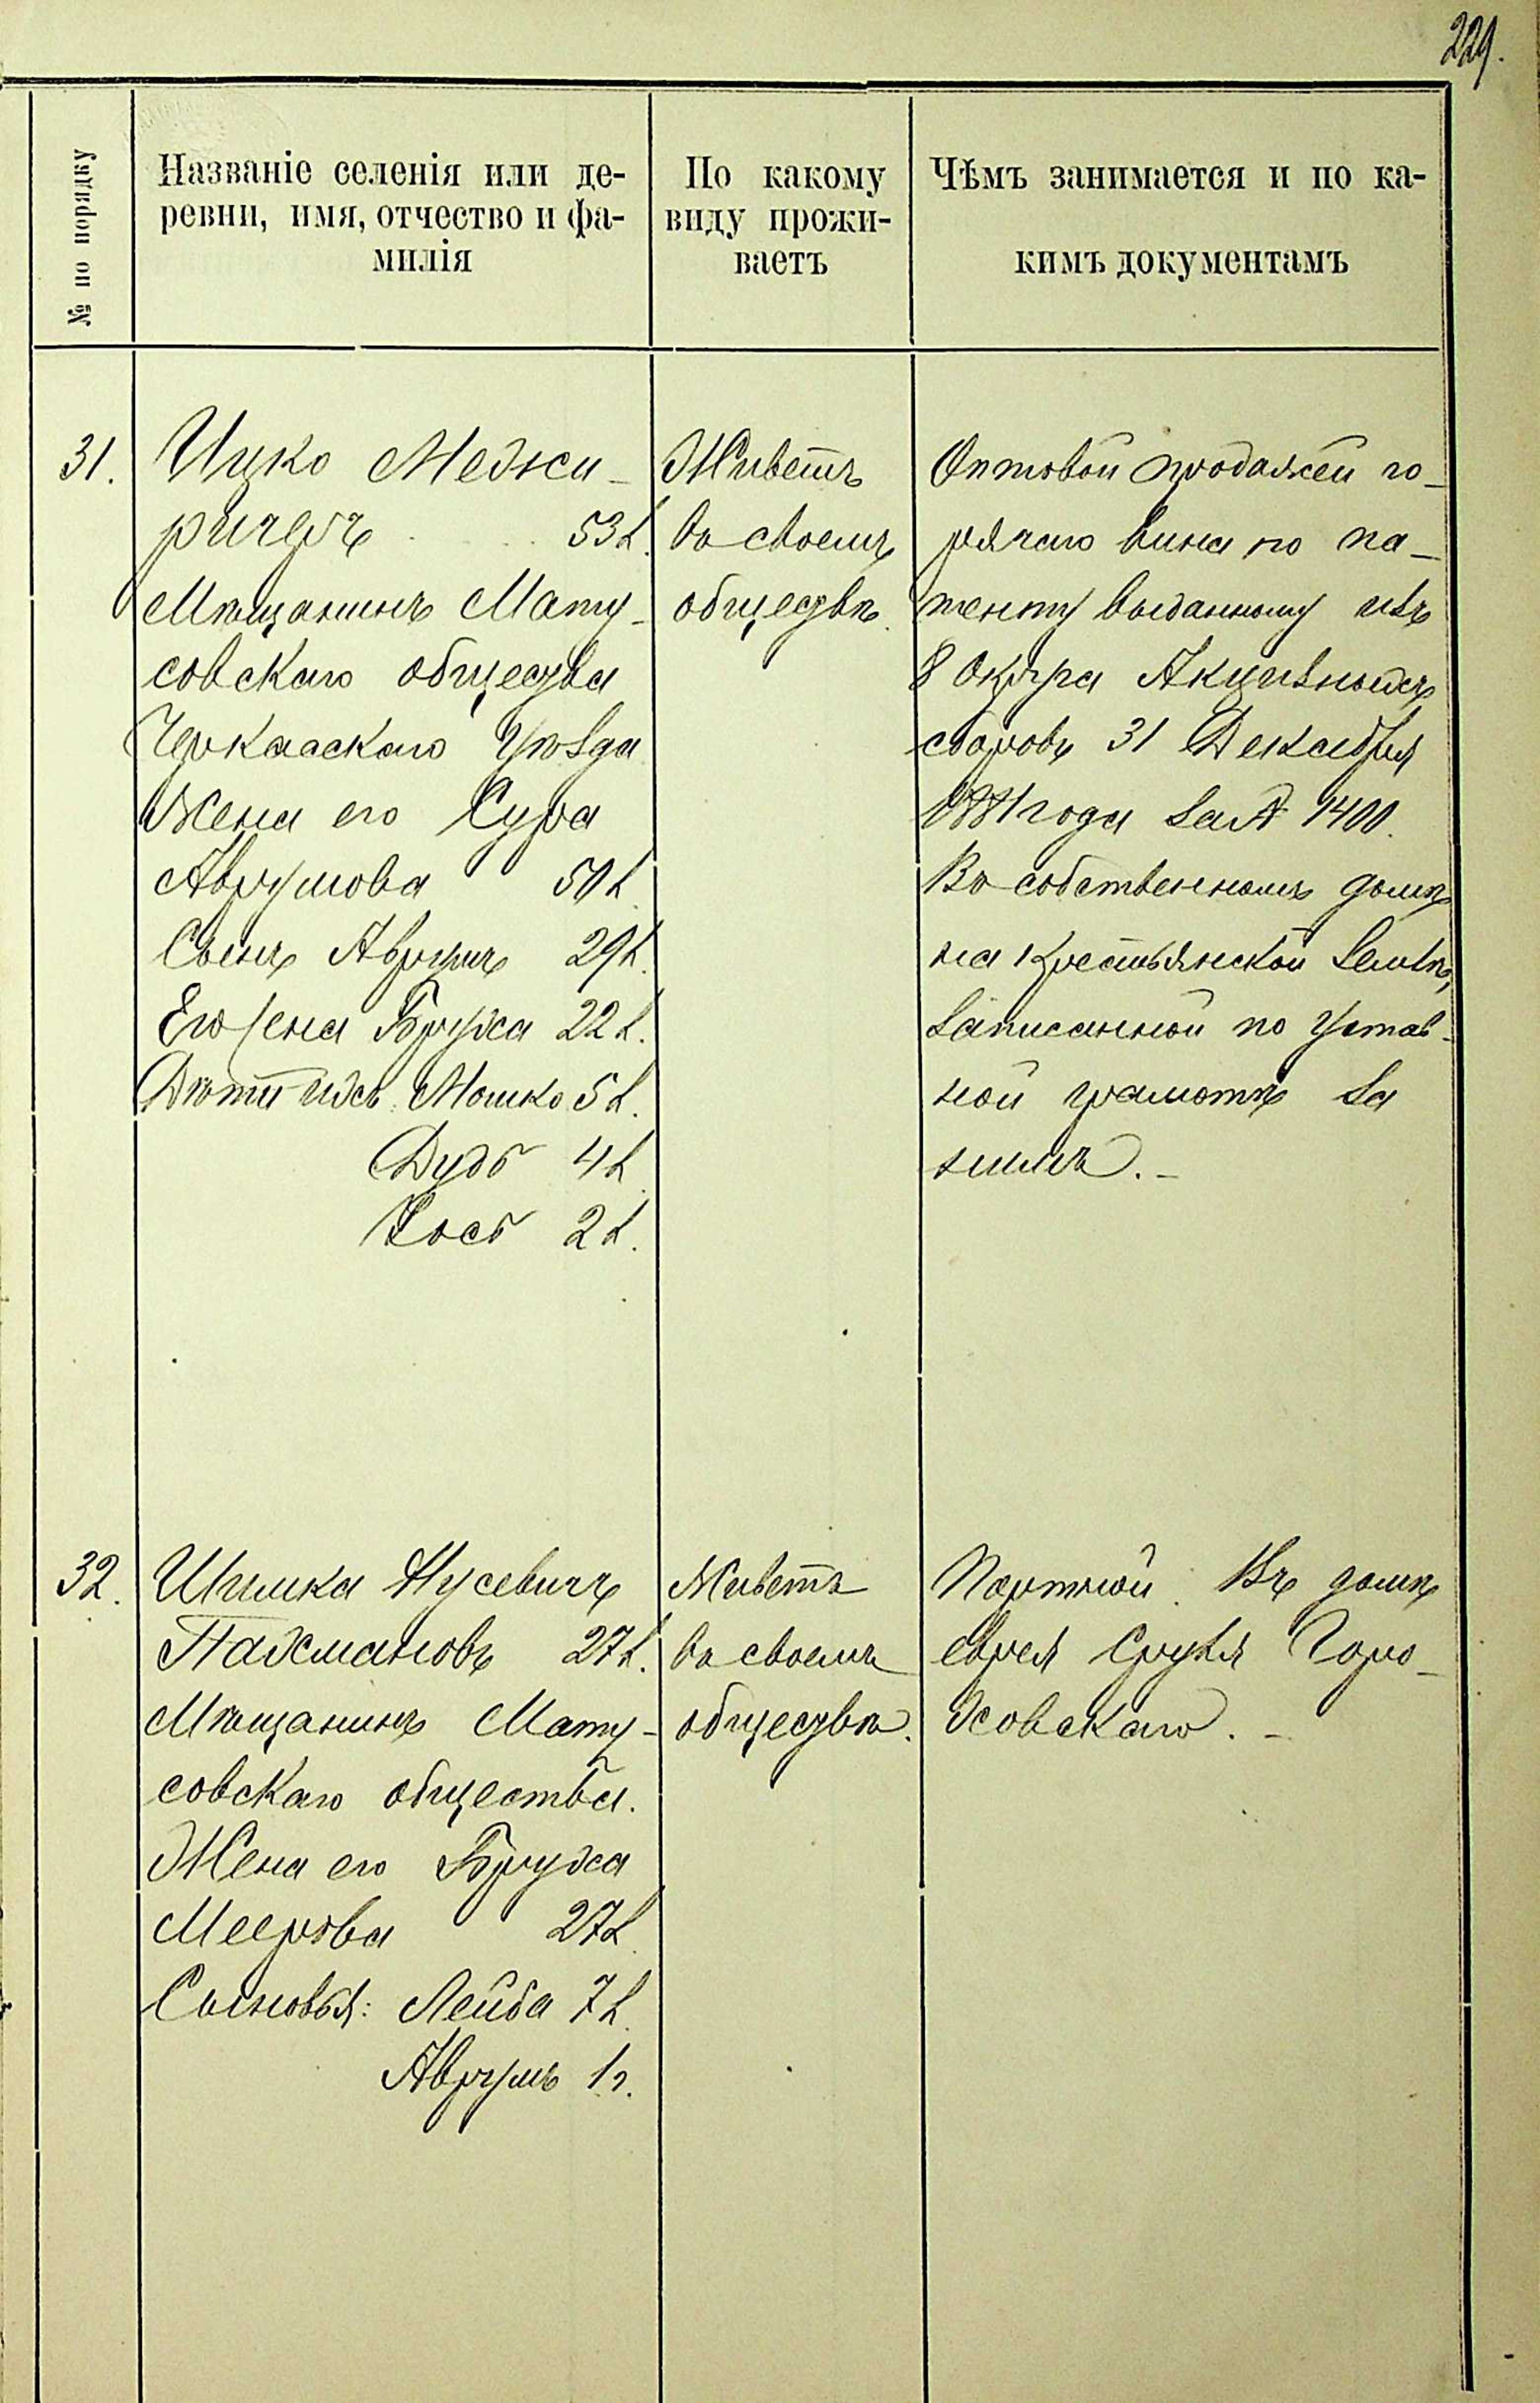 229.
№ по порядку
Названіе селенія или де-
ревни, имя, отчество и фа-
милія
По какому
виду прожи-
ваетъ
Чѣмъ занимается и по ка-
кимъ документамъ
31.
Ицко Межи-
ричеръ 53 л.
Мѣщанинъ Мату-
совскаго общества
Черкасскаго Уѣзда
Жена его Сура
Аврумова 50 л.
Сынъ Аврумъ 29 л.
Его жена Бруха 22 л.
Дѣти ихъ: Мошко 5 л.
Дудь 4 л.
Іось 2 л.
Живетъ
въ своемъ
обществѣ.
Оптовой продажей го-
рячаго вина по па-
тенту выданному изъ
8 Окр҃га Акцизныхъ
сборовъ 31 Декабря
1881 года за № 1400.
Въ собственномъ домѣ
на крестьянской землѣ,
записанной по Устав-
ной грамотѣ за
нимъ.-
32.
Шимка Нусевичъ
Пахмановъ 27 л.
Мѣщанинъ Мату-
совскаго общества.
Жена его Бруха
Меерова 27 л.
Сыновья: Лейба 7 л.
Аврумъ 1 г.
Живетъ
въ своемъ
обществѣ.
Портной. Въ домѣ
еврея Сруля Горо-
ховскаго.-